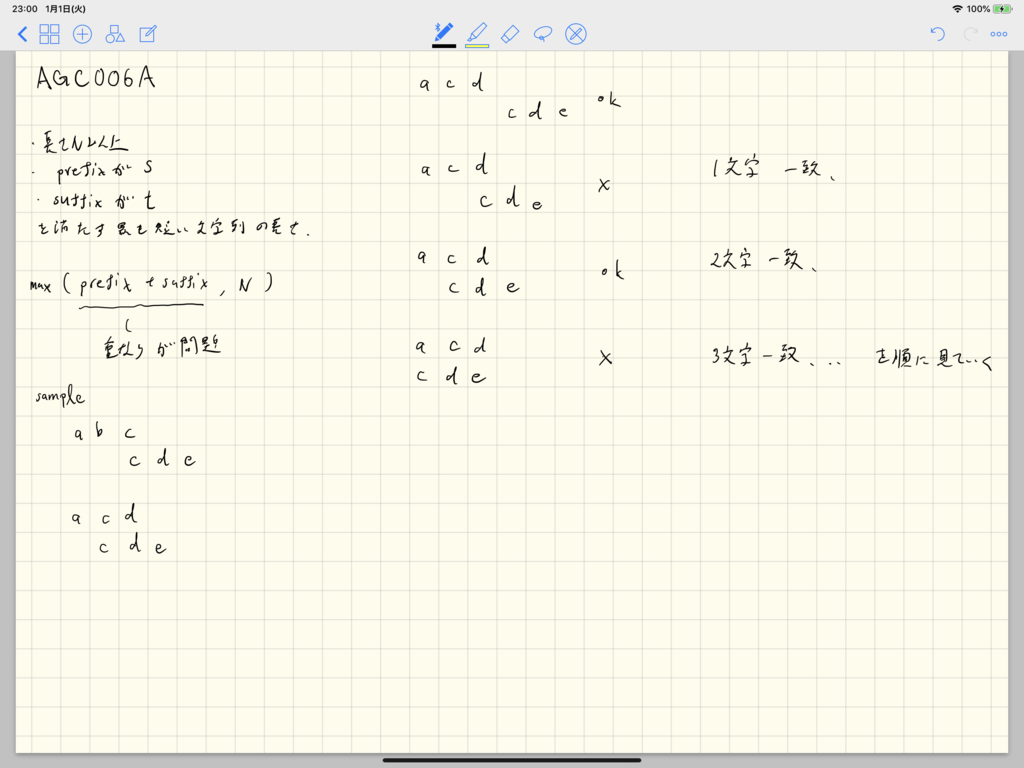 23:00 1月1日(火)
100%
AGC006A
・長さN以上
・prefixが s
・suffixが t
を満たす最も短い文字列の長さ.
max ( prefix + suffix , N )
重なりが問題
sample
a b c
c d e
a c d
c d e
a c d
c d e ok
a c d
c d e x 1文字 一致、
a c d
c d e ok 2文字 一致、
a c d
c d e x 3文字 一致、... を順に見ていく